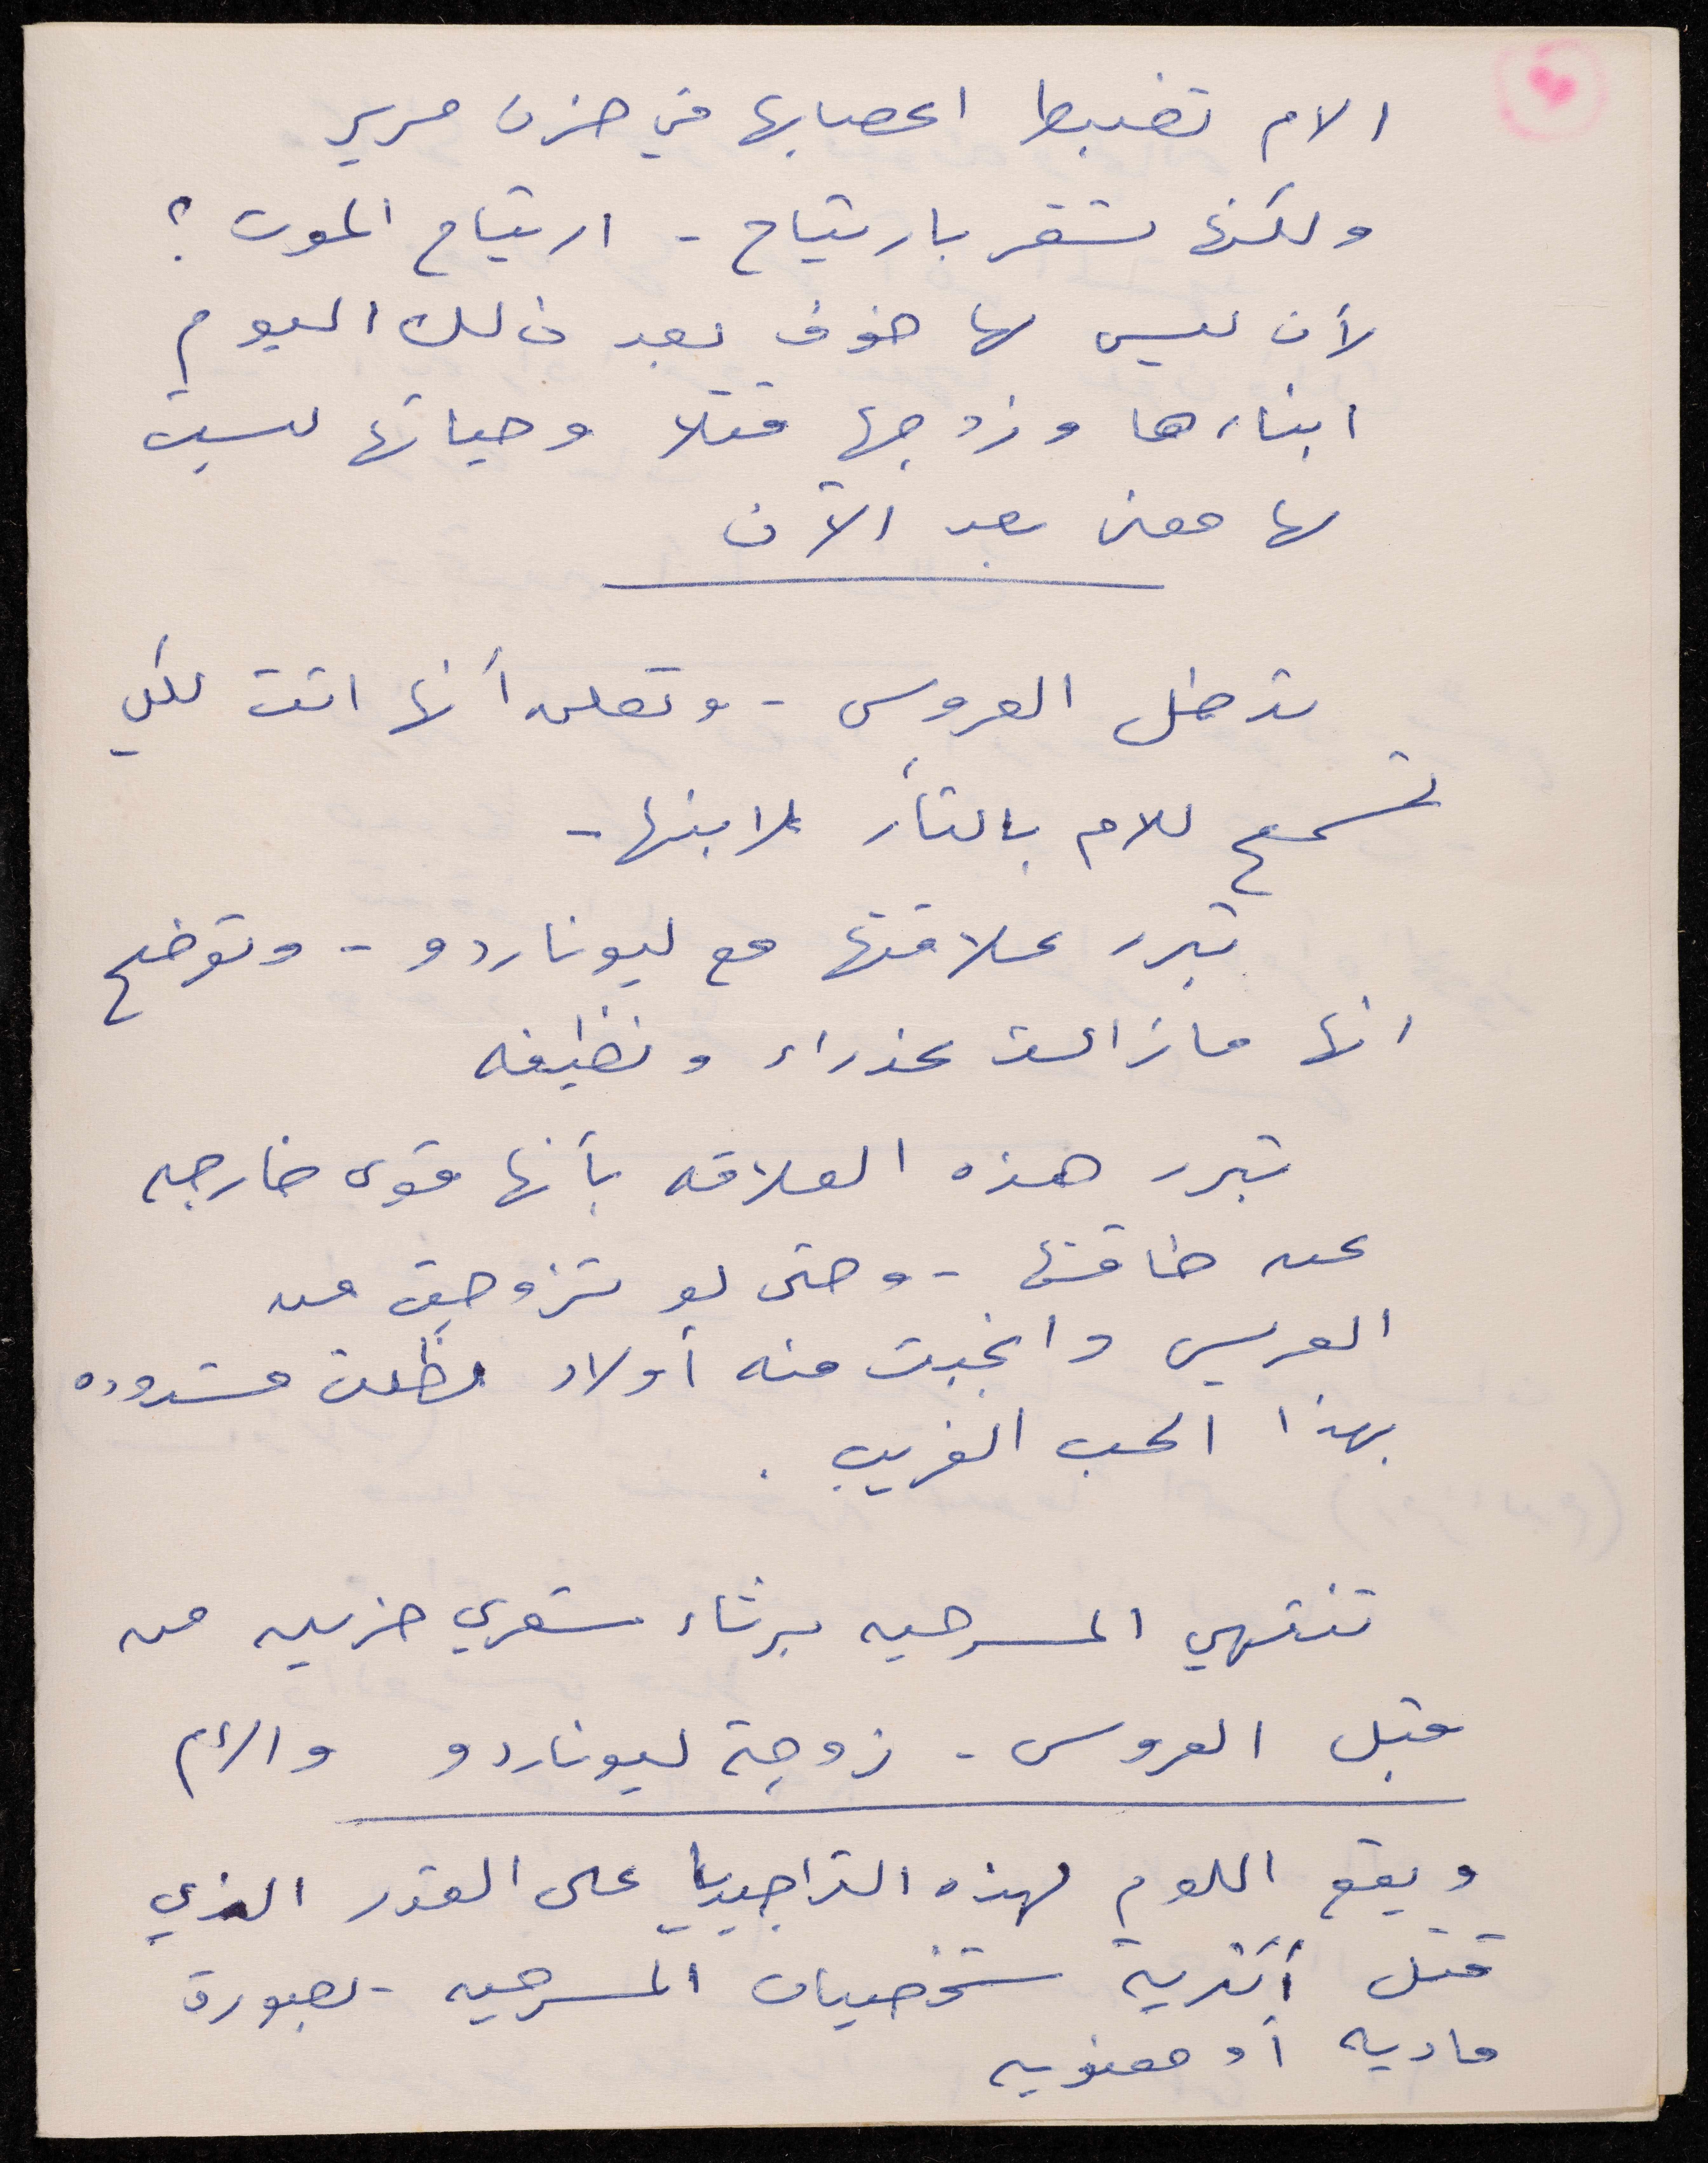 الام تضبط اعصابها في حزن مرير
ولكنها تشعر بارتياح - ارتياح الموت؟
لأن ليس لها خوف بعد ذلك اليوم
ابناءها وزوجها قتلا وحياتها ليست
لها معنى بعد الآن
تدخل العروس - وتعلن أنها اتت لكي
تسمح للام بالثأر لابنها -
تبرر علاقتها مع ليوناردو - وتوضح
انها مازالت عذراء ونظيفه
تبرر هذه العلاقه بأنها قوى خارجه
عن طاقتها - وحتى لو تزوجت من
العريس وانجبت منه أولاد لظلت مشدوده
بهذا الحب الغريب .
تنتهي المسرحيه برثاء شعري حزين من
قبل العروس - زوجة ليوناردو والأم
ويقع اللوم لهذه التراجيديا على القدر الذي
قتل أكثرية شخصيات المسرحيه - بصورة
ماديه أو معنويه